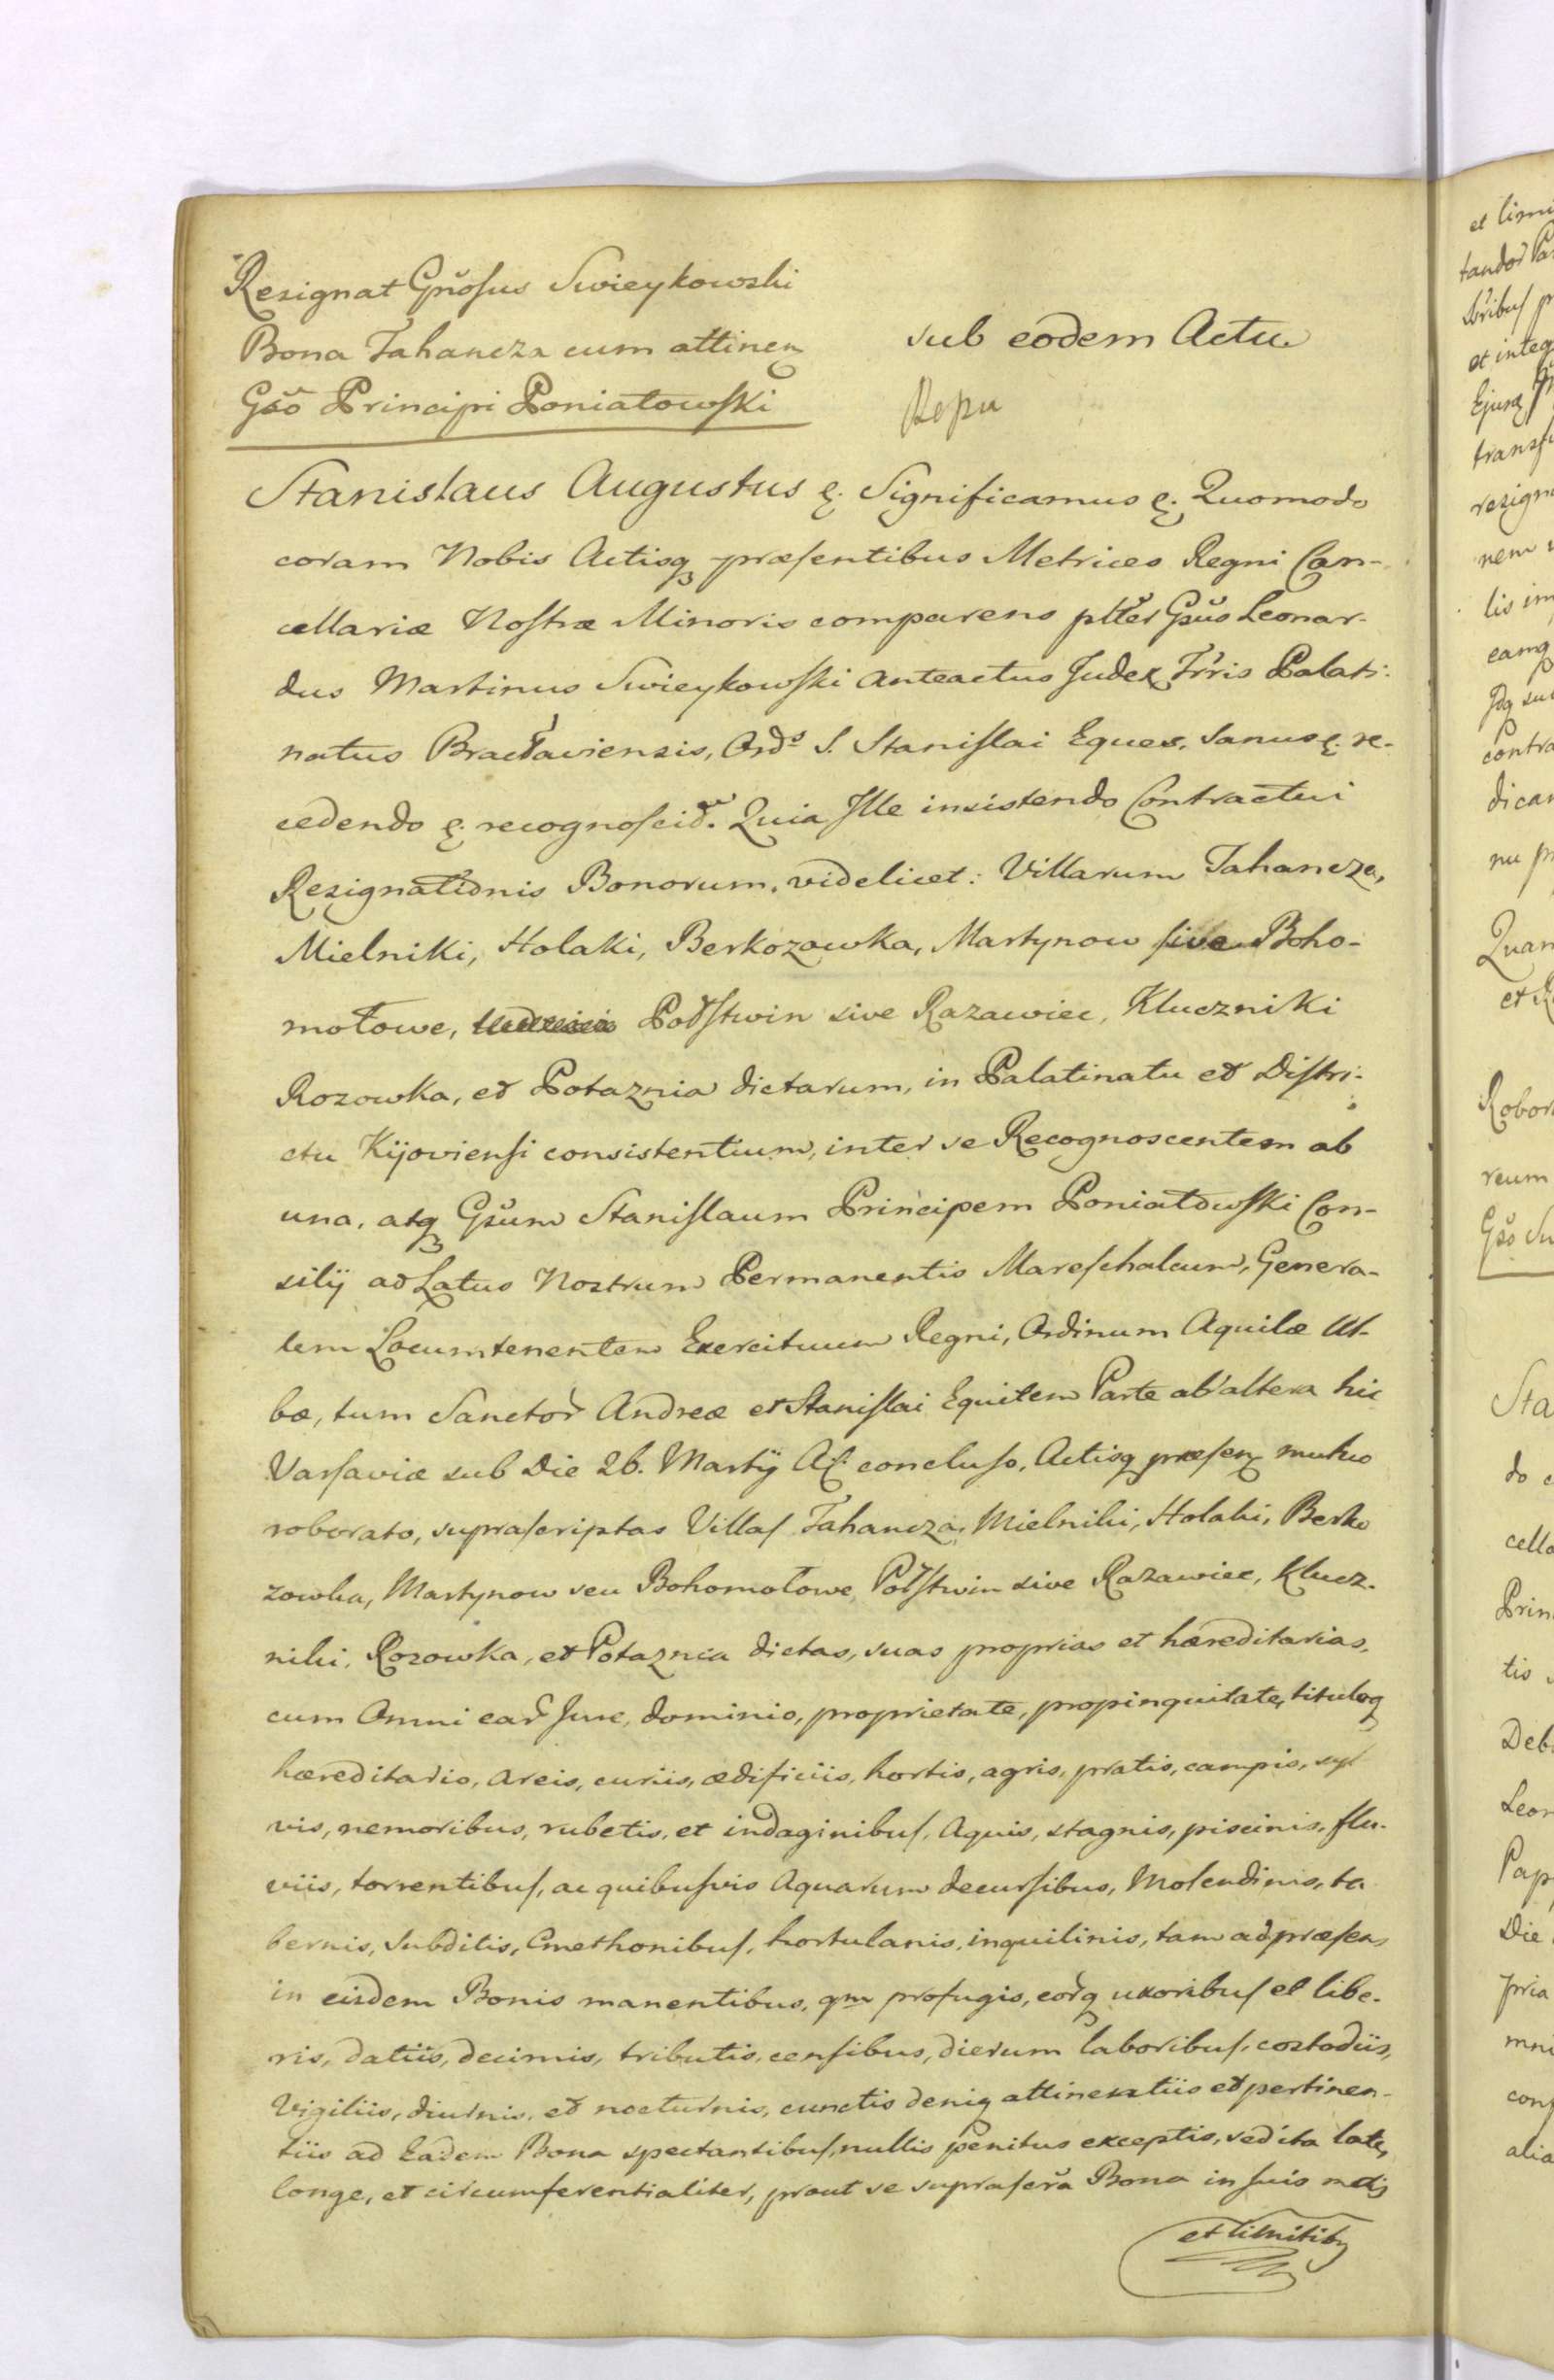 Resignat Gñosus Swieykowski
Bona Tahancza cum attinen
Gšo Principi Poniatowski
sub eodem Actu
Stanislaus Augustus &. Significamus &. Quomodo
coram Nobis Actisq præsentibus Metrices Regni Can-
cellariæ Nostræ Minoris comparens Gšus Leonar-
dus Martinus Swieykowski Anteactus Judex Trris Palati-
natus Bracłaviensis, Ord⁵ S. Stanislai Eques, Sanus &. re-
cedendo &. recognoscid. Quia Ille insistendo Contractui
Rezignationis Bonorum, videlicet: Villarum Tahancza,
Mielniki, Holaki, Berkozowka, Martynow sive Boho-
motowe, Podstwin sive Razawiec, Kluczniki
Rozowka, et Potaznia dictarum, in Palatinatu et Distri-
ctu Kijoviensi consistentium, inter se Recognoscentem ab
una, atq Gšum Stanislaum Principem Poniatowski Con-
silij ad Latus Nostrum Permanentis Mareschalcum, Genera-
lem Locumtenentem Exercituum Regni, Ordinum Aquilæ Al-
bæ, tum Sanctor Andreæ et Stanislai Equitem Parte ab altera hic
Varsaviæ sub Die 26. Martij concluso, Actisq præsen mutuo
roborato, suprascriptas Villas Tahancza, Mielniki, Holaki, Berko
zowka, Martynow seu Bohomotowe, Podstwin sive Razawiec, Klucz-
niki, Rozowka, et Potaznia dictas, suas proprias et hæreditarias,
cum Omni ear Jure, dominio, proprietate, propinquitate, tituloq
hæreditario, areis, curiis, ædificiis, hortis, agris, pratis, campis, syl
vis, nemoribus, rubetis, et indaginibus, Aquis, stagnis, piscinis, flu-
viis, torrentibus, ac quibusvis Aquarum decursibus, Molendinis, ta
bernis, Subditis, Cmethonibus, hortulanis, inquilinis, tam ad præsens
in eisdem Bonis manentibus, qm profugis, eorq uxoribus et libe-
ris, datiis, decimis, tributis, censibus, dierum laboribus, costodiis,
Vigiliis, diurnis, et nocturnis, cunctis deniq attinentiis et pertinen-
tiis ad Eadem Bona spectantibus, nullis penitus exceptis, sed ita late,
longe, et circumferentialiter, prout se suprascra Bona in suis metis
et limitib